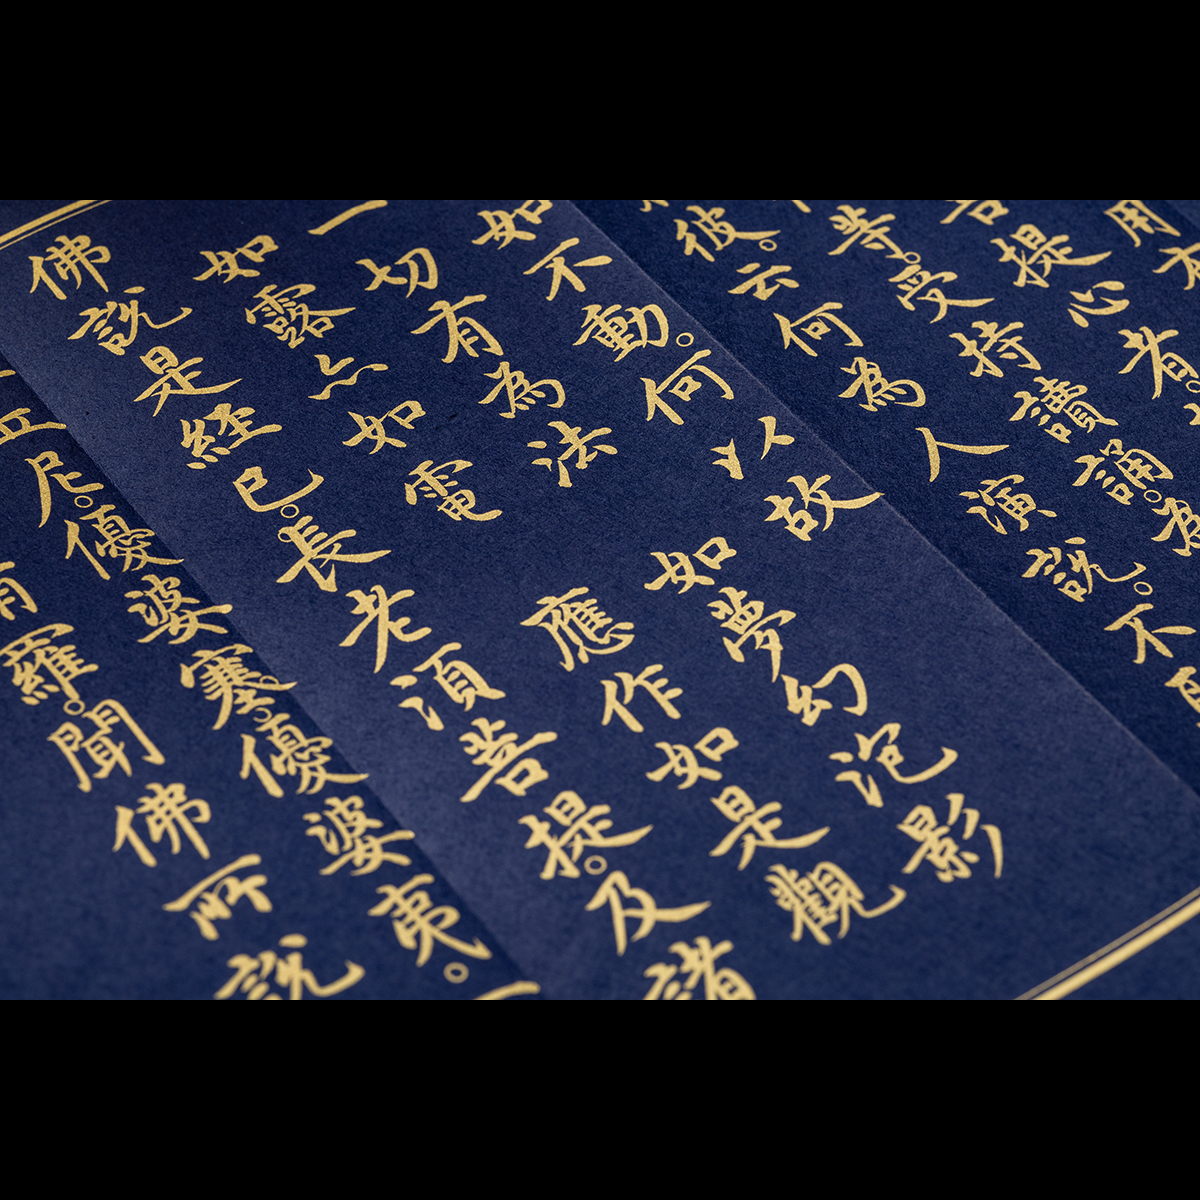 用
提心者。
等。受持讀誦。為
彼。云何為人演說。不
如不動。何以故
一切有為法　如夢幻泡影
如露亦如電　應作如是觀
佛說是經已。長老須菩提。及諸
丘尼。優婆塞。優婆夷。一
羅。聞佛所說